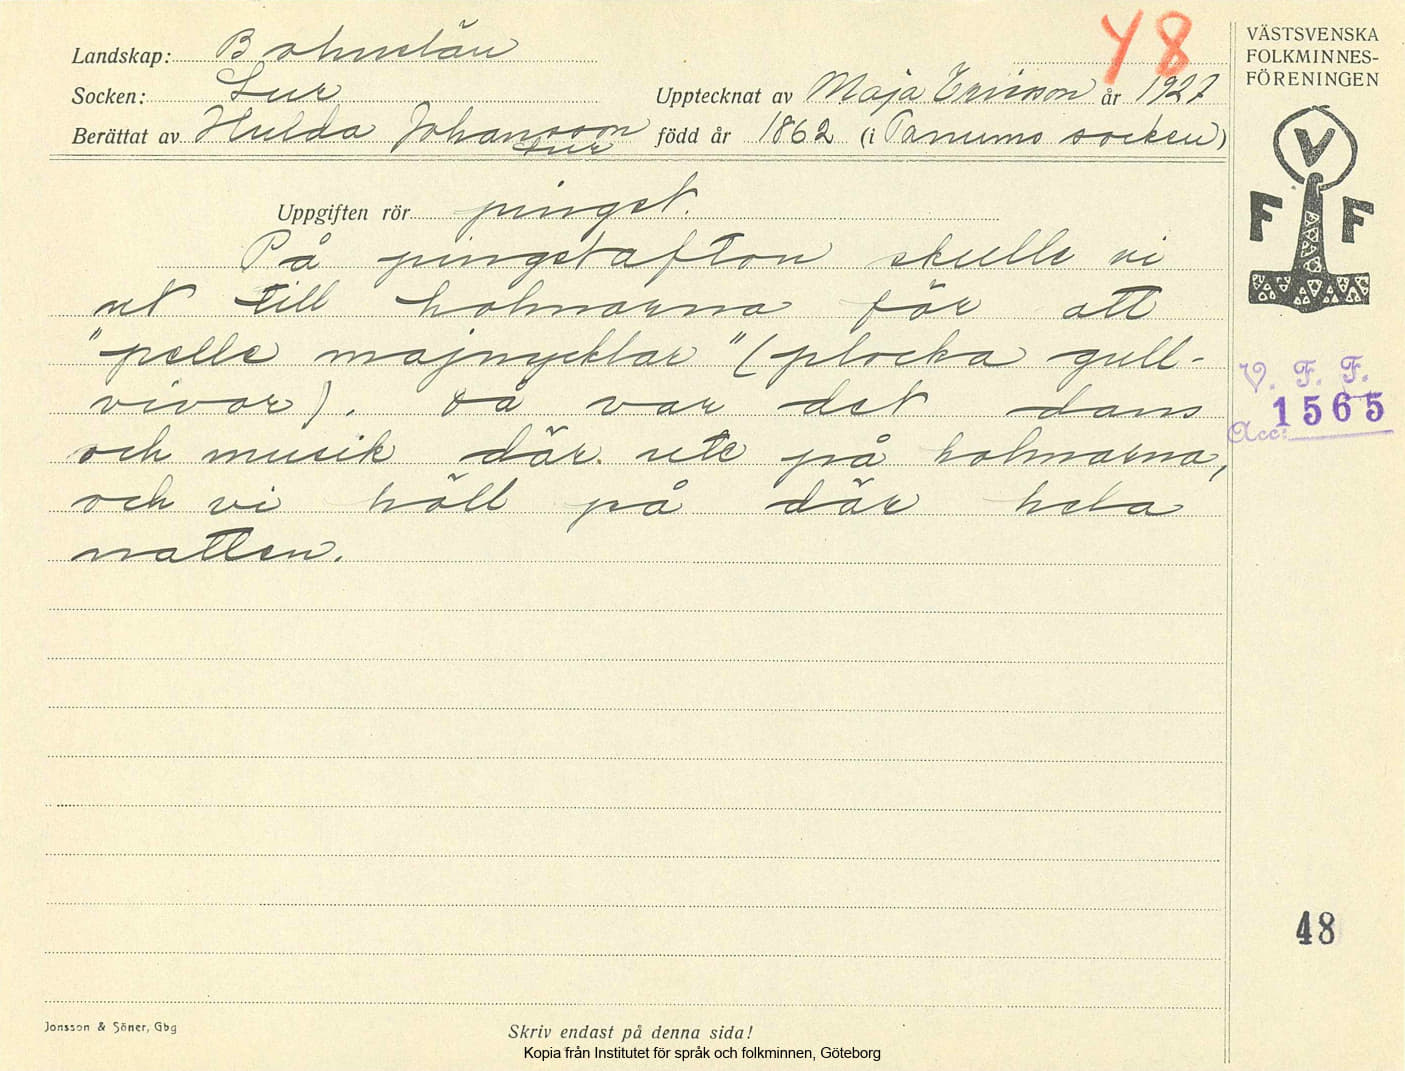 Y8
VÄSTSVENSKA
FOLKMINNES-
FÖRENINGEN
Landskap: Bohuslän
Socken: Lur
Upptecknat av Maja Ericson år 1927
Berättat av Hulda Johansson
Lur
född år 1862 (i Tanums socken)
V
F F
Uppgiften rör pingst.
På pingstafton skulle vi
ut till holmarna för att
"pelle majnycklar" (plocka gull-
vivor). Då var det dans
och musik där ute på holmarna,
och vi höll på där hela
natten.
V. F. F.
Acc: 1565
48
Jonsson & Söner, Gbg
Skriv endast på denna sida!
Kopia från Institutet för språk och folkminnen, Göteborg